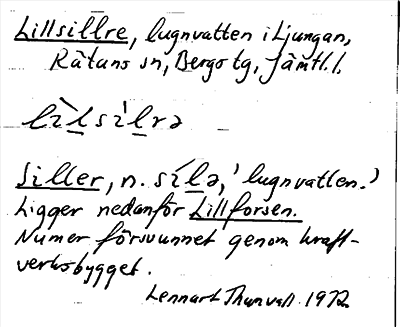 Lillsillre, lugnvatten i Ljungan,
Rätans sn, Bergs tg, Jämtl. l.
lìlsìlrə
Siller, n. sílə, 'lugnvatten.'
Ligger nedanför Lillforsen.
Numer försvunnet genom kraft-
verksbygget.
Lennart 1972